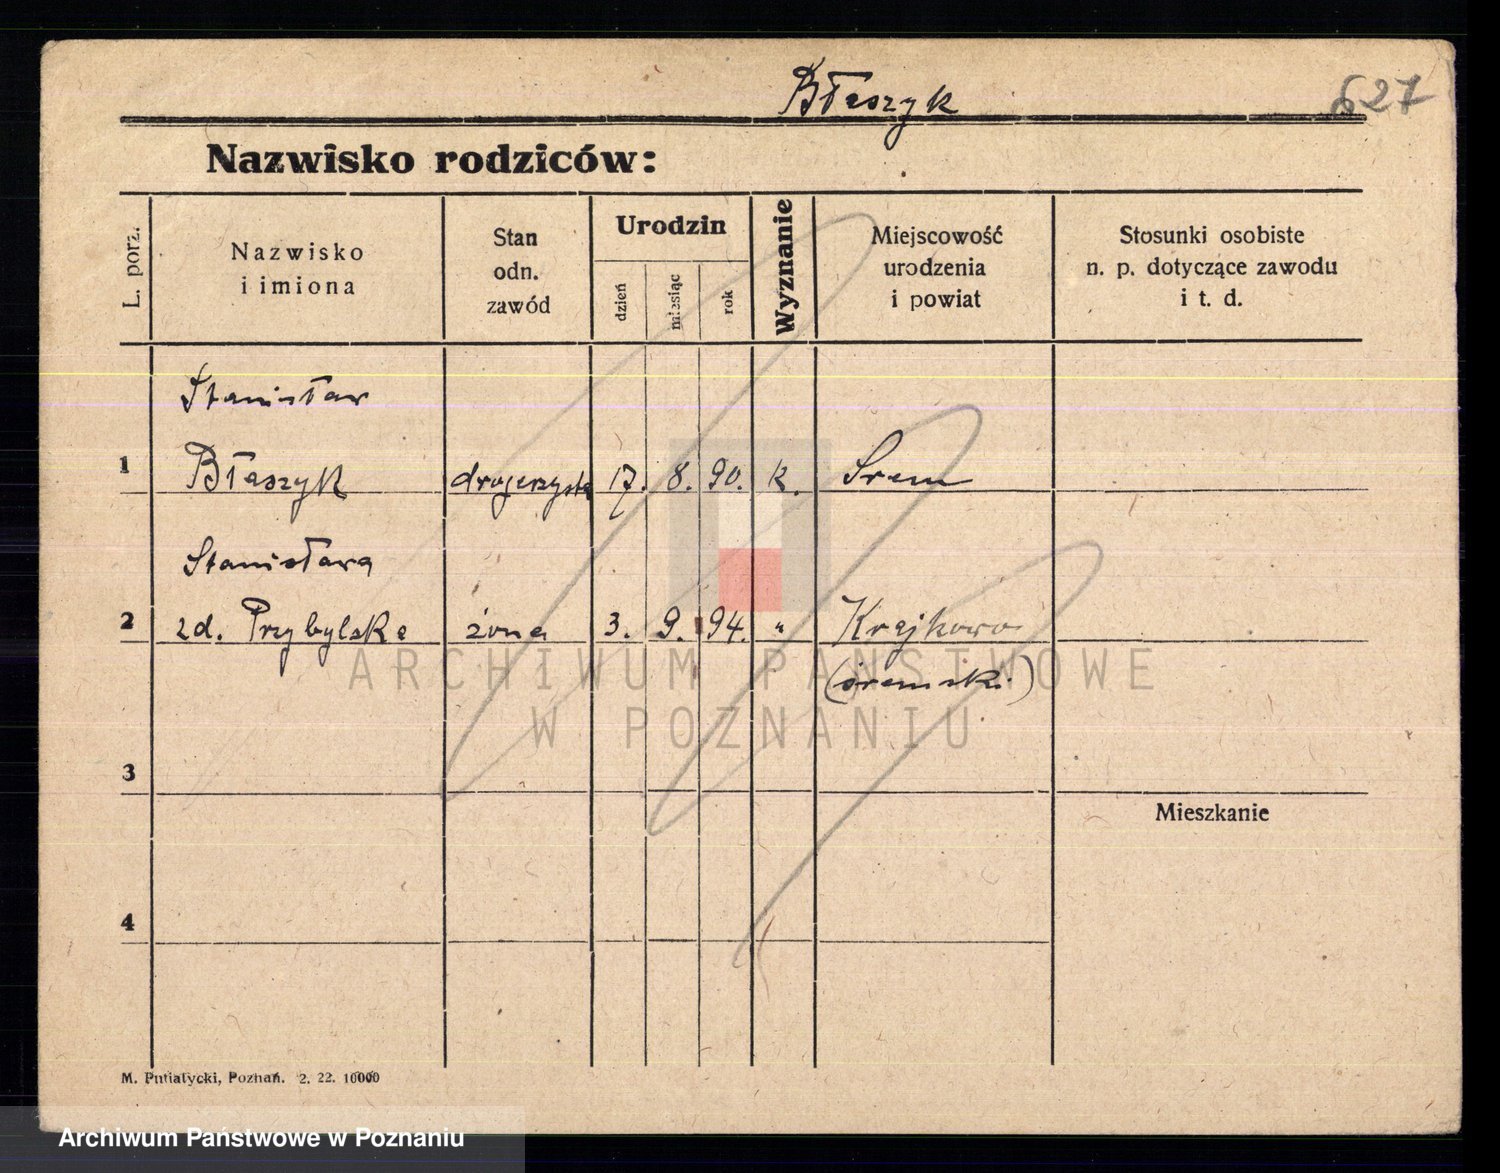 Błaszyk
627
Nazwisko rodziców:
L. porz.
Nazwisko
i imiona
Stan
odn.
zawód
Urodzin
dzień
miesiąc
rok
Wyznanie
Miejscowość
urodzenia
i powiat
Stosunki osobiste
n. p. dotyczące zawodu
i t. d.
Stanisław
1 Błaszyk drogerzysta 17. 8. 90. k. Srem
Stanisława
2 zd. Przybylska żona 3. 9. 94. " Krajkowo
(śremski)
ARCHIWUM PAŃSTWOWE
W POZNANIU
3
Mieszkanie
4
M. Putiatycki, Poznań. 2. 22. 10000
Archiwum Państwowe w Poznaniu